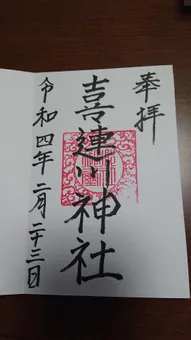 奉拝
喜連川神社
令和四年二月二十三日